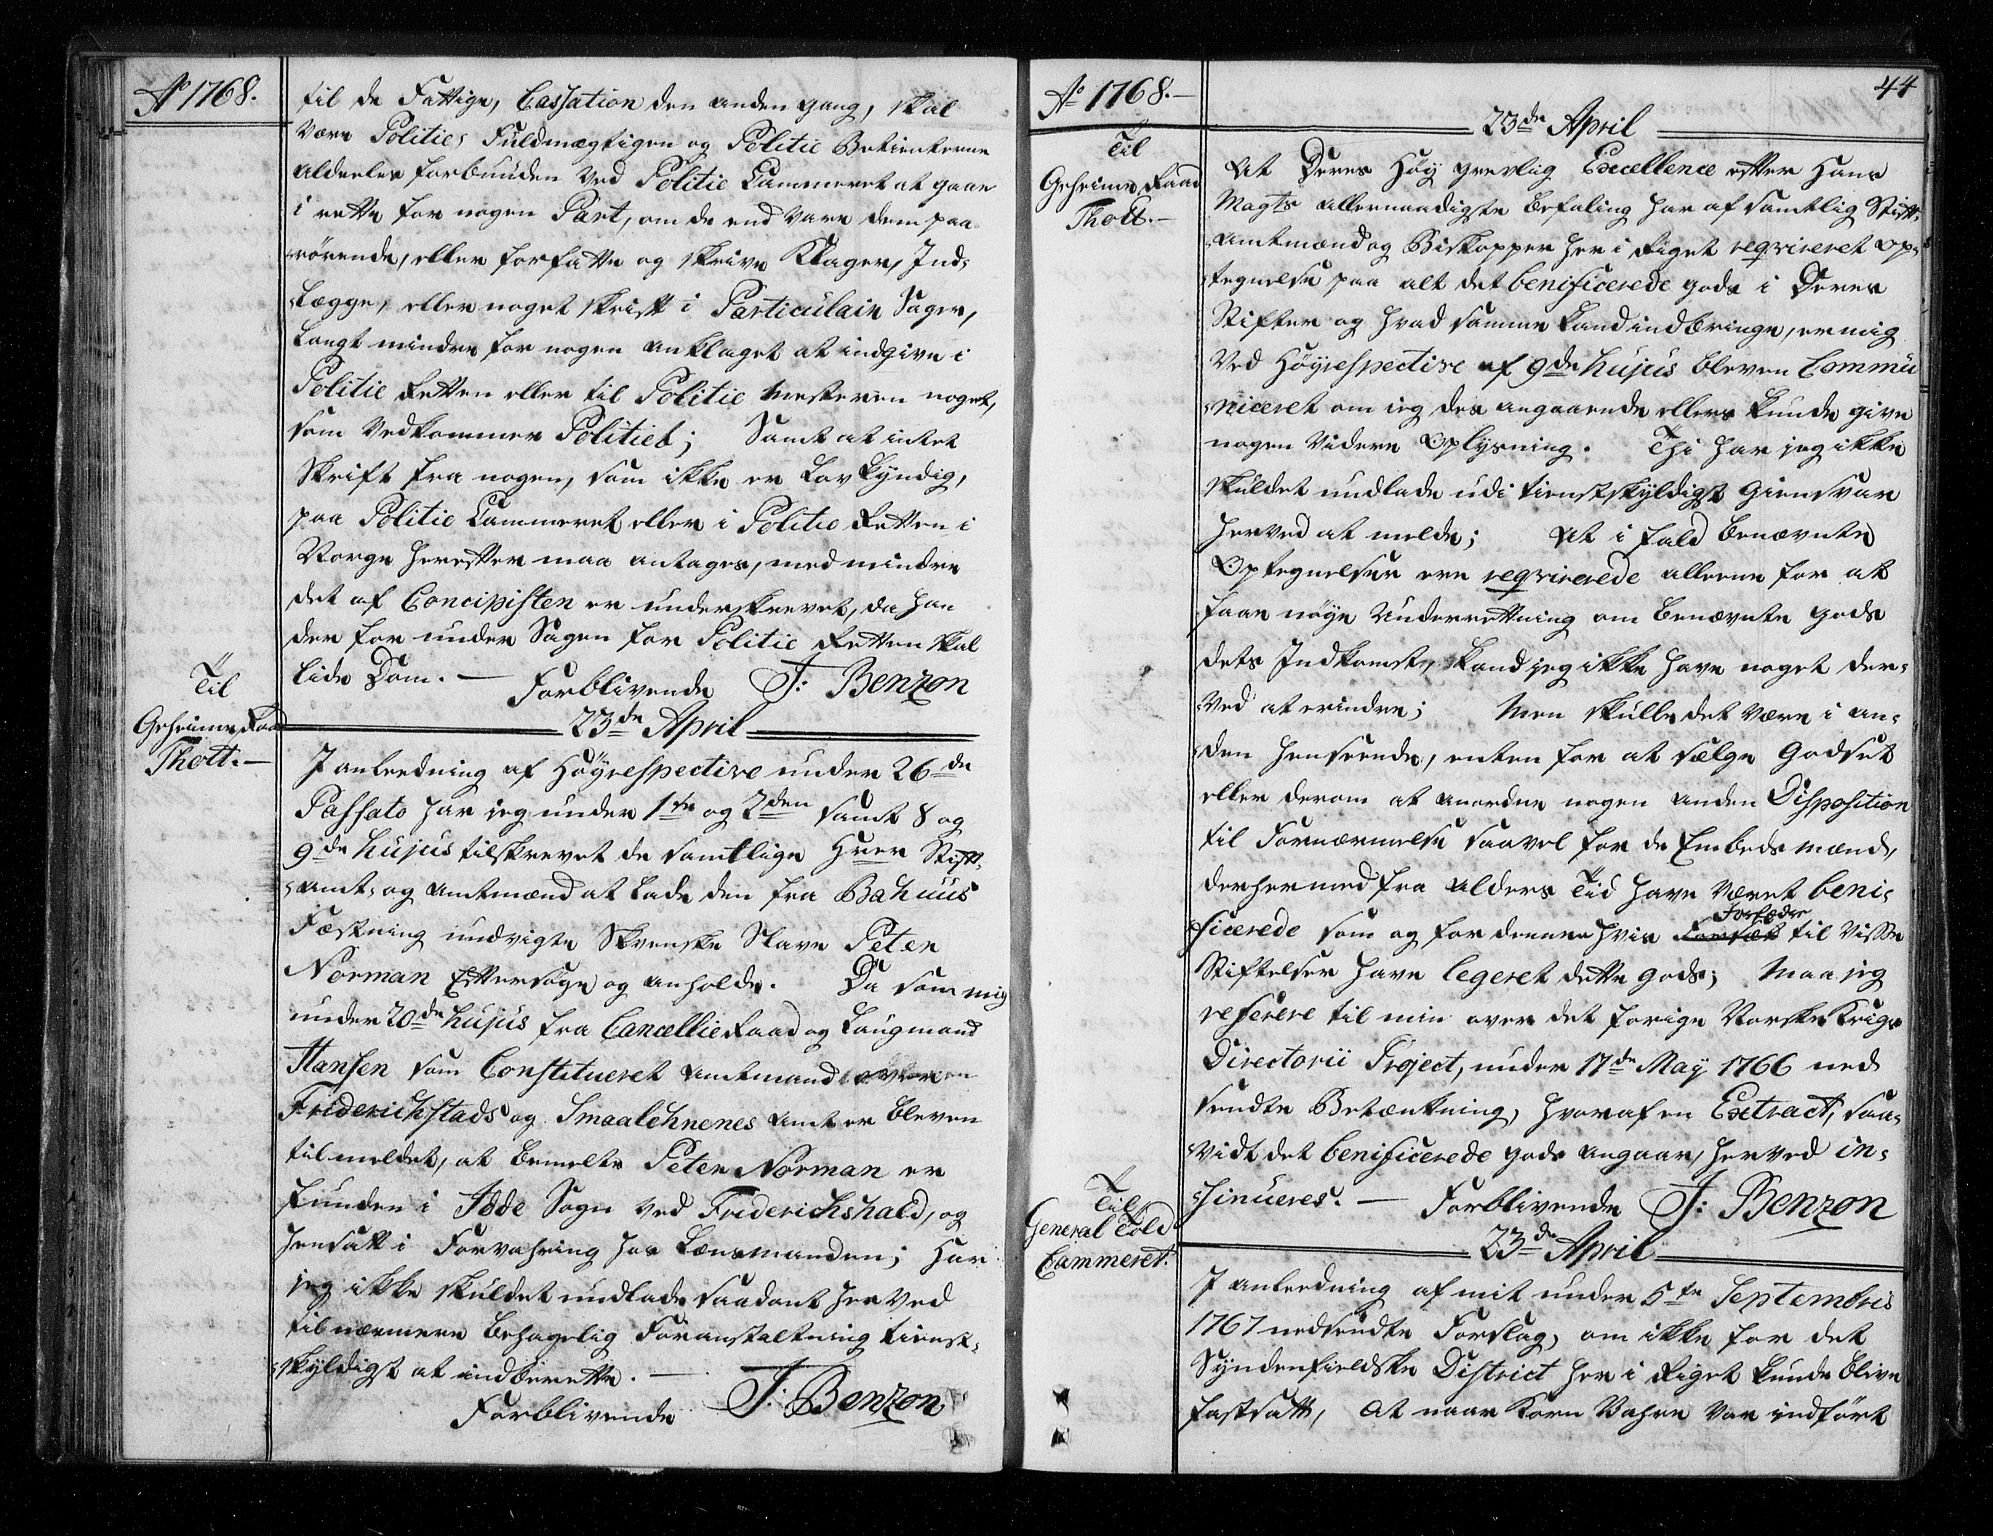 Ao 1768.
til de Fattige, Cassation den anden gang, skal
være Politie, Fuldmægtigen og Politie Betienterne
alderles forbunden ved Politie Cammeret at gaae
i rette for nogen Part, om de end vare dem paa-
rørende, eller forfatte og skrive Klager, Ind-
-lægge, eller noget skrift i Particulair Sager,
langt mindre for nogen anklaget at indgive i
Politie Retten eller til Politie mesteren noget,
som vedkommer Politiet; Samt at intet
skrift fra nogen, som ikke er Lovkyndig,
paa Politie Cammeret eller i Politie Retten i
Norge herefter maa antages, med mindre
det af Concipisten er underskrevet, da han
der for under Sagen for Politie Retten skal
lide Dom. — Forblivende J: Benzon
Til
Geheime Raad
Thott. —
23de April
I anledning af Høyrespective under 26de
Passato har jeg under 1ste og 2den samt 8 og
9de hujus tilskrevet de samtlige Hrer Stift-
-amt- og amtmænd at lade den fra Bahuus
Fæstning undvigte Svenske Slave Peter
Norman eftersøge og anholde. Da som mig
under 20de hujus fra Cancellie Raad og Laugmand
Hansen som Constitueret amtmand over
Friderichstads og Smaalehnenes amt er bleven
tilmeldet, at bemelte Peter Norman er
funden i Idde Sogn ved Friderichshald, og
hensatt i Forvahring hos Lensmanden; Har
jeg ikke skuldet undlade saadant herved
til nærmere behagelig Foranstaltning tienst-
-skyldigst at indberette. —
Forblivende J: Benzon
Ao 1768. —
44
Til
Geheime Raad
Thott. —
23de April
At Deres Høy grevlig Excellence efter Hans
Mayts allernaadigste befaling har af samtlig Stift-
-amtmænd og Biskopper her i Riget reqvireret op-
-tegnelse paa alt det benificerede gods i Deres
Stifter og hvad samme kand indbringe, er mig
ved Høyrespective af 9de hujus bleven Commu
-niceret om jeg des angaaende ellers kunde give
nogen videre Oplysning. Thi har jeg ikke
skuldet undlade udi tienstskyldigst Giensvar
herved at melde; At i fald benævnte
Optegnelser ere reqvirerede alleene for at
faae nøye Underrettning om benævnte gods
dets Indkomst, kand jeg ikke have noget der-
-ved at erindre; Men skulle det være i an-
-den henseende, enten for at sælge Godset
eller derom at anordne nogen anden Disposition
til Fornærmelse saavel for de Embeds mænd,
der hermed fra alders Tid have været beni-
ficerede som og for denne hvis Forfædre til visse
Stiftelser have legeret dette gods; Maa jeg
referere til min over det forige Norske Krigs
Directorii Project, under 17de May 1766 ned
sendte Betænkning, hvoraf en Extract, saa-
-vidt det benificerede gods angaar, herved in-
-sinueres. — Forblivende J: Benzon
Til
General Told
Cammeret.
23de April
I anledning af mit under 5te Septembris
1767 nedsendte Forslag, om ikke for det
Syndenfieldske District her i Riget kunde blive
fastsatt, At naar Korn Vahre var indført